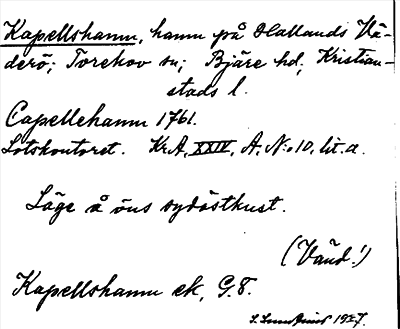 Kapellshamn, hamn på Hallands Vä-
derö; Torekov sn; Bjäre hd, Kristian-
stads l.
Capellehamn 1761.
Lotskontoret. Kr.A. XXIV, A. N:o 10, lit. a.
Läge å öns sydöstkust.
(Vänd!)
Kapellshamn ek, G.T.
1927.